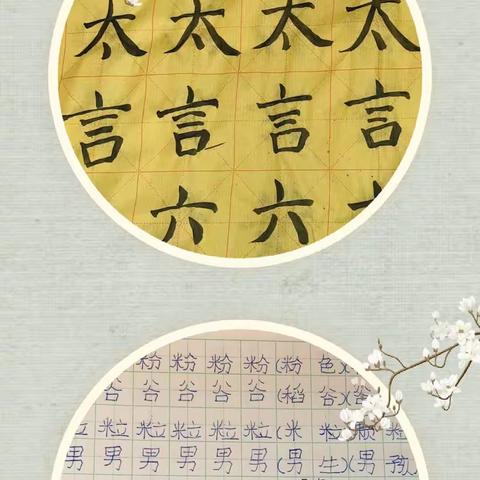 太 太 太 太
言 言 言 言
六 六
粉 粉 粉 粉 (粉 色)(
谷 谷 谷 谷 谷 (稻 谷)(谷
粒 粒 粒 粒 粒 (米 粒)(颗 粒
男 男 男 男 男 男 (男 生)(男 孩)